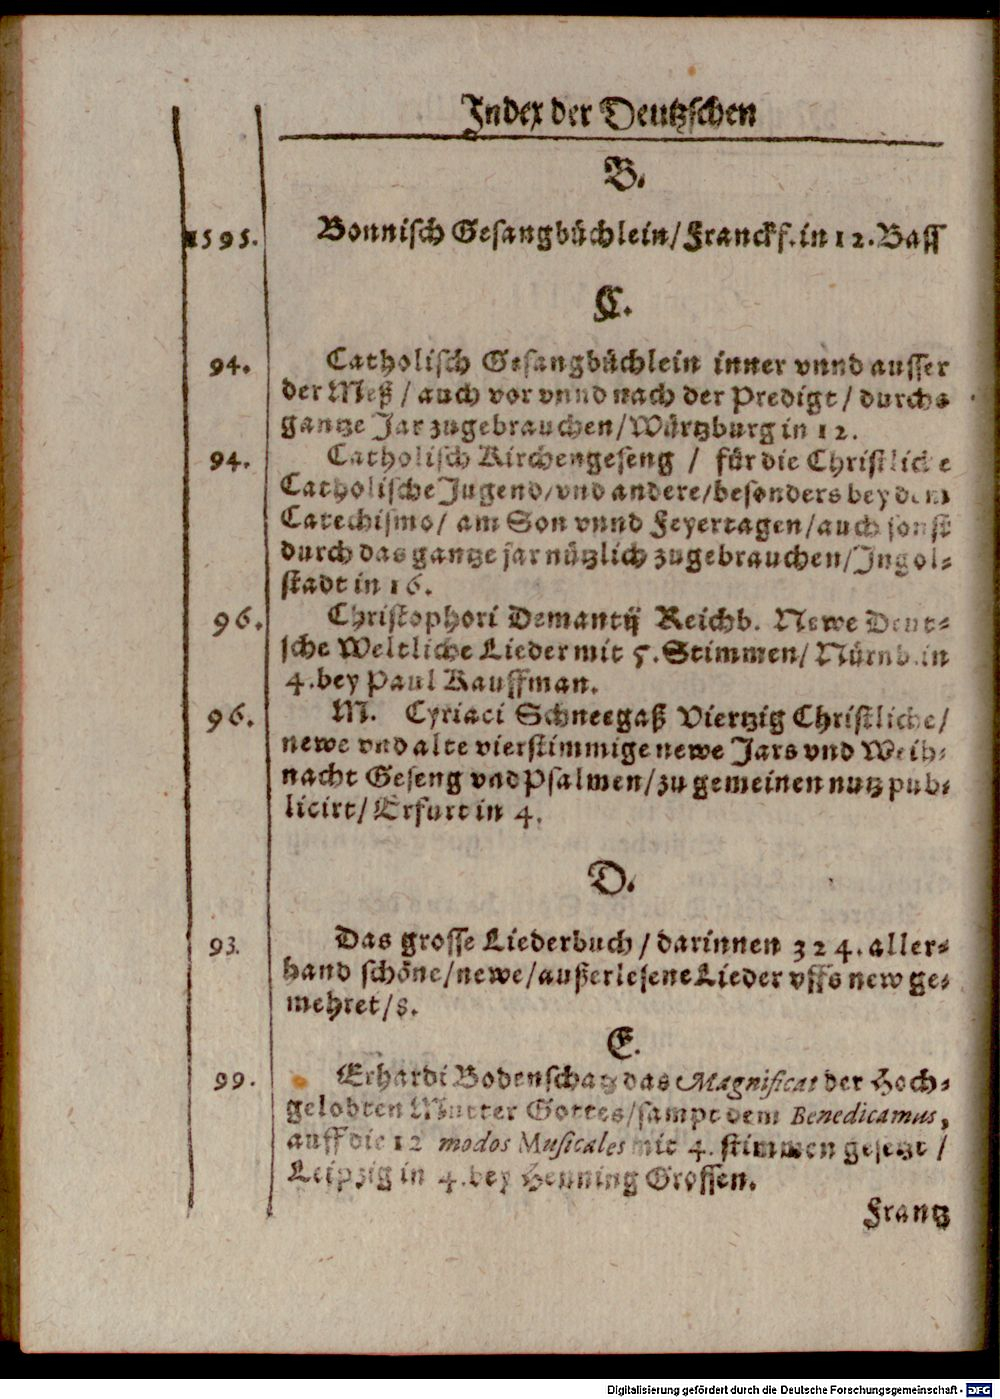 Index der Deutzschen
B.
1595. Bonnisch Gesangbüchlein/Franckf. in 12. Bass
C.
94. Catholisch Gesangbüchlein inner vnnd ausser
der Meß / auch vor vnnd nach der Predigt / durchs
gantze Jar zugebrauchen/Würtzburg in 12.
94. Catholisch Kirchengeseng / für die Christliche
Catholische Jugend/vnd andere/besonders bey dem
Catechismo/ am Son vnnd Feyertagen/auch sonst
durch das gantze jar nützlich zugebrauchen/Ingol-
stadt in 16.
96. Christophori Demantij Reichb. Newe Deut-
sche Weltliche Lieder mit 5. Stimmen/ Nürnb. in
4. bey Paul Kauffman.
96. M. Cyriaci Schneegaß Viertzig Christliche/
newe vnd alte vierstimmige newe Jars vnd Weih-
nacht Geseng vnd Psalmen/zu gemeinen nutz pub-
licirt/ Erfurt in 4.
D.
93. Das grosse Liederbuch / darinnen 324. aller-
hand schöne/newe/außerlesene Lieder vffs new ge-
mehret/8.
E.
99. Erhardi Bodenschatz das Magnificat der Hoch-
gelobten Mutter Gottes/sampt dem Benedicamus,
auff die 12 modos Musicales mit 4. stimmen gesetzt /
Leipzig in 4. bey Henning Grossen.
Frantz
Digitalisierung gefördert durch die Deutsche Forschungsgemeinschaft - DFG